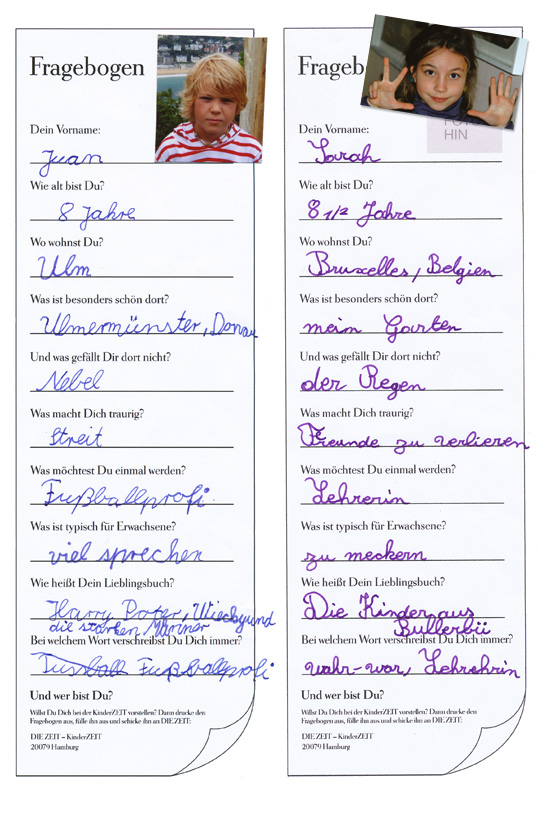 Fragebogen
Dein Vorname:
Juan
Wie alt bist Du?
8 Jahre
Wo wohnst Du?
Ulm
Was ist besonders schön dort?
Ulmermünster, Donau
Und was gefällt Dir dort nicht?
Nebel
Was macht Dich traurig?
Streit
Was möchtest Du einmal werden?
Fußballprofi
Was ist typisch für Erwachsene?
viel sprechen
Wie heißt Dein Lieblingsbuch?
Harry Poter, Wieckyund
die starken Mäner
Bei welchem Wort verschreibst Du Dich immer?
Fußballprofi
Und wer bist Du?
Willst Du Dich bei der KinderZEIT vorstellen? Dann drucke den
Fragebogen aus, fülle ihn aus und schicke ihn an DIE ZEIT:
DIE ZEIT – KinderZEIT
20079 Hamburg
Frageb
HIN
Dein Vorname:
Sarah
Wie alt bist Du?
8 1/2 Jahre
Wo wohnst Du?
Bruxelles, Belgien
Was ist besonders schön dort?
mein Garten
Und was gefällt Dir dort nicht?
der Regen
Was macht Dich traurig?
Freunde zu verlieren
Was möchtest Du einmal werden?
Lehrerin
Was ist typisch für Erwachsene?
zu meckern
Wie heißt Dein Lieblingsbuch?
Die Kinder aus
Bullerbü
Bei welchem Wort verschreibst Du Dich immer?
wahr-war, Lehrehrin
Und wer bist Du?
Willst Du Dich bei der KinderZEIT vorstellen? Dann drucke den
Fragebogen aus, fülle ihn aus und schicke ihn an DIE ZEIT:
DIE ZEIT – KinderZEIT
20079 Hamburg